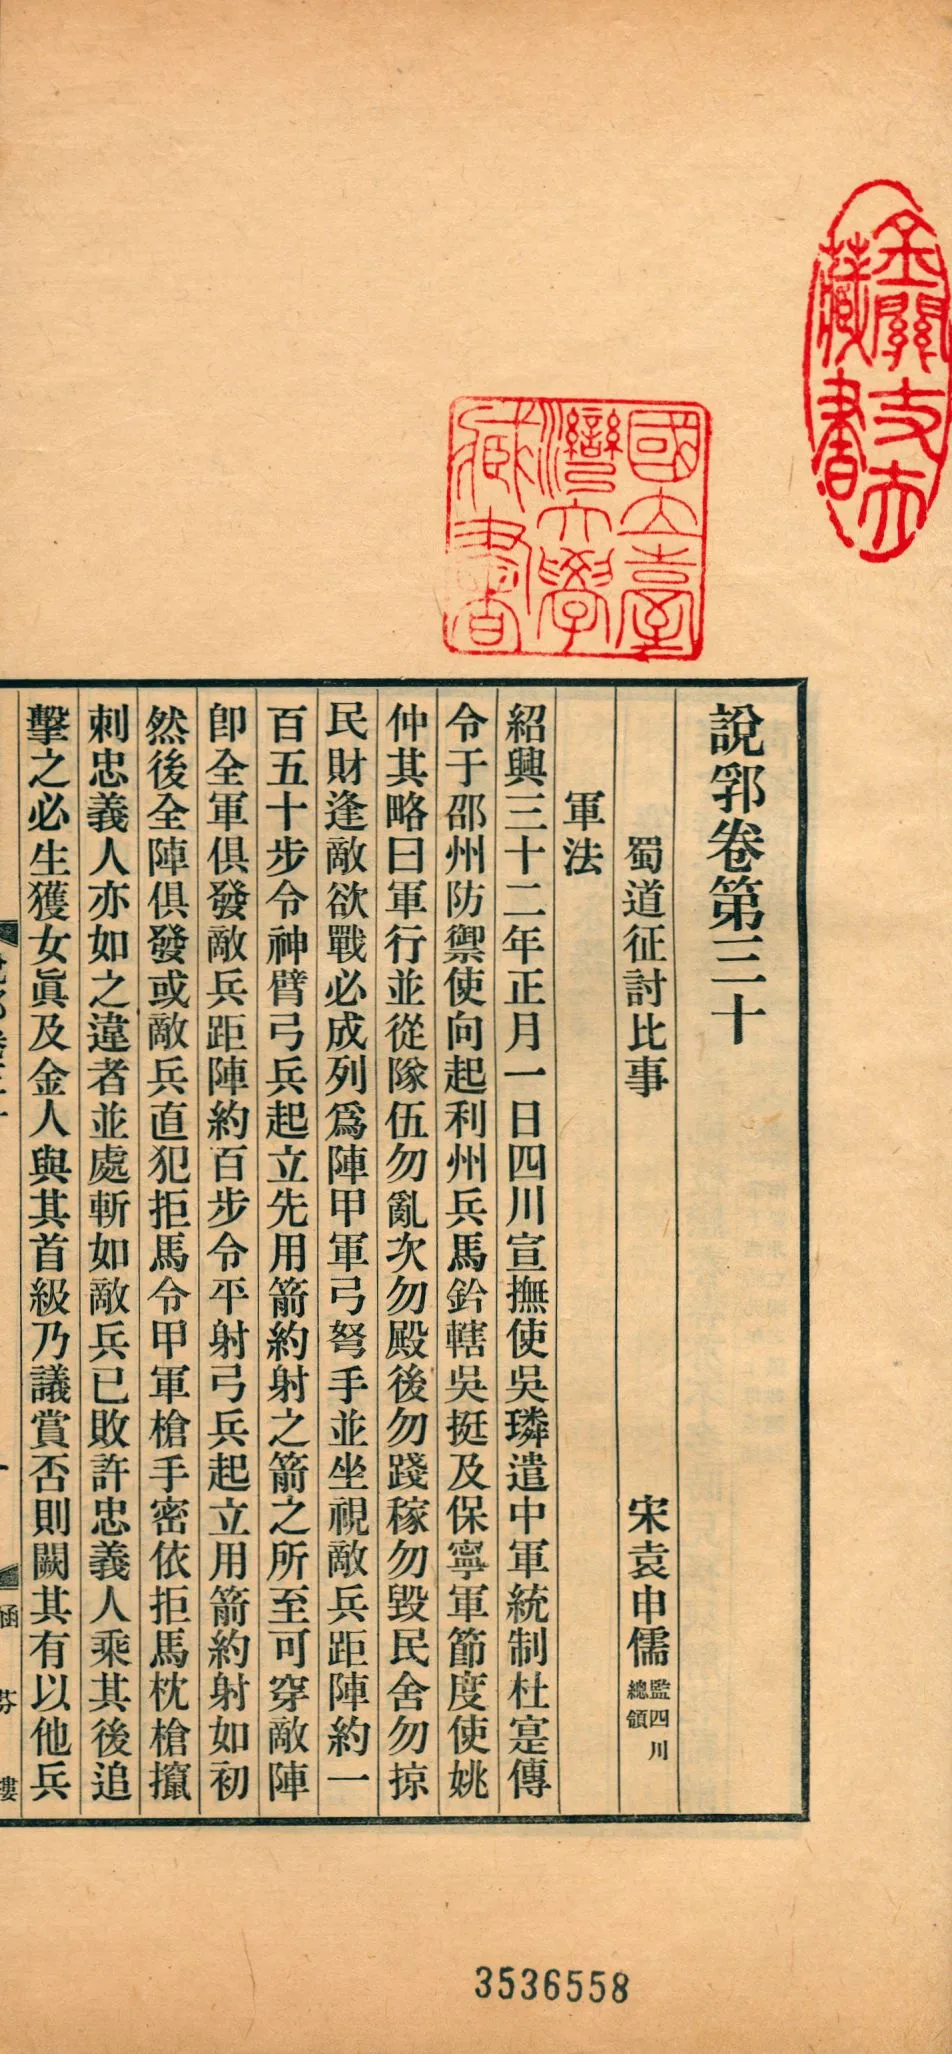 說郛卷第三十
蜀道征討比事
宋袁申儒
監四川
總領
軍法
紹興三十二年正月一日四川宣撫使吳璘遣中軍統制杜寔傳
令于邵州防禦使向起利州兵馬鈐轄吳挺及保寧軍節度使姚
仲其略曰軍行並從隊伍勿亂次勿殿後勿踐稼勿毀民舍勿掠
民財逢敵欲戰必成列爲陣甲軍弓弩手並坐視敵兵距陣約一
百五十步令神臂弓兵起立先用箭約射之箭之所至可穿敵陣
卽全軍俱發敵兵距陣約百步令平射弓兵起立用箭約射如初
然後全陣俱發或敵兵直犯拒馬令甲軍槍手密依拒馬枕槍攛
刺忠義人亦如之違者並處斬如敵兵已敗許忠義人乘其後追
擊之必生獲女眞及金人與其首級乃議賞否則闕其有以他兵
涵芬樓
國立臺
灣大學
藏書
藏書
3536558